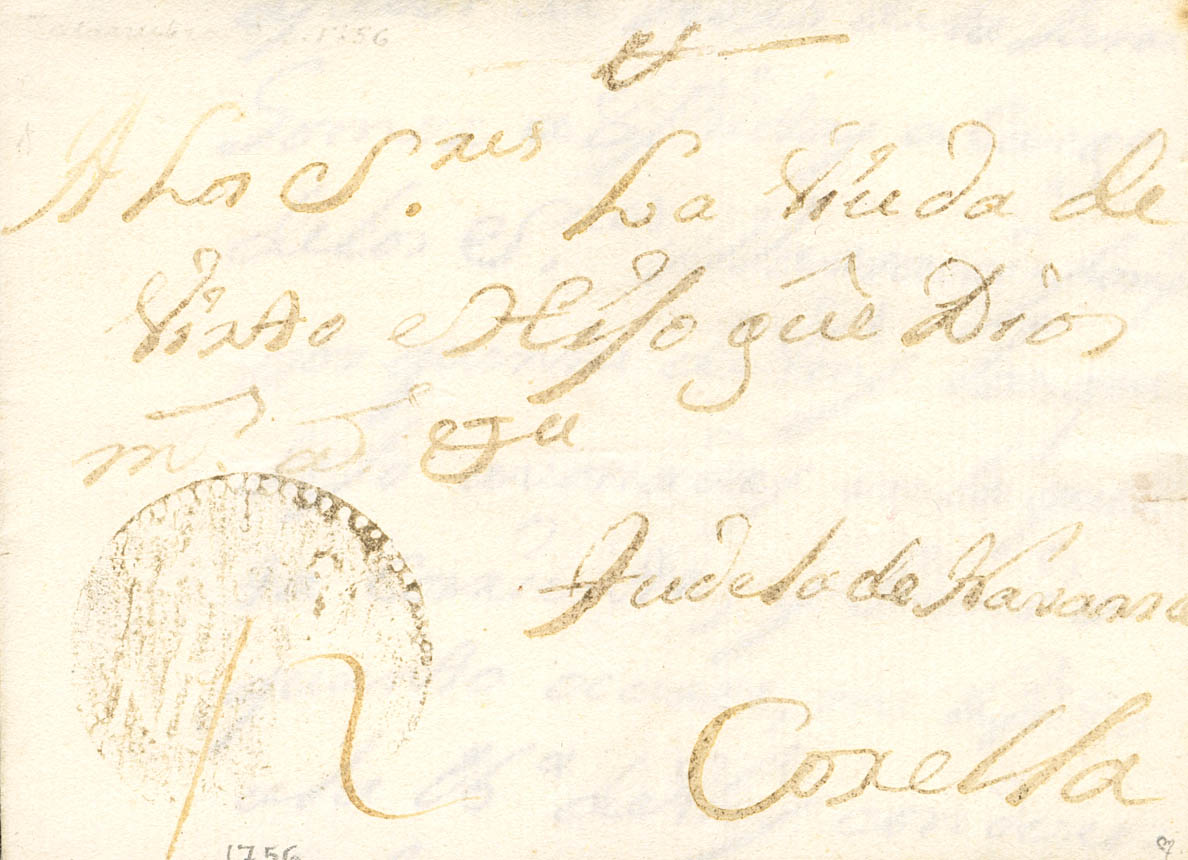 1756
A Los S.res La Viuda de
Virto e Hijo que Dios
m.s a.s
Tudela de Navarra
Corella
1756